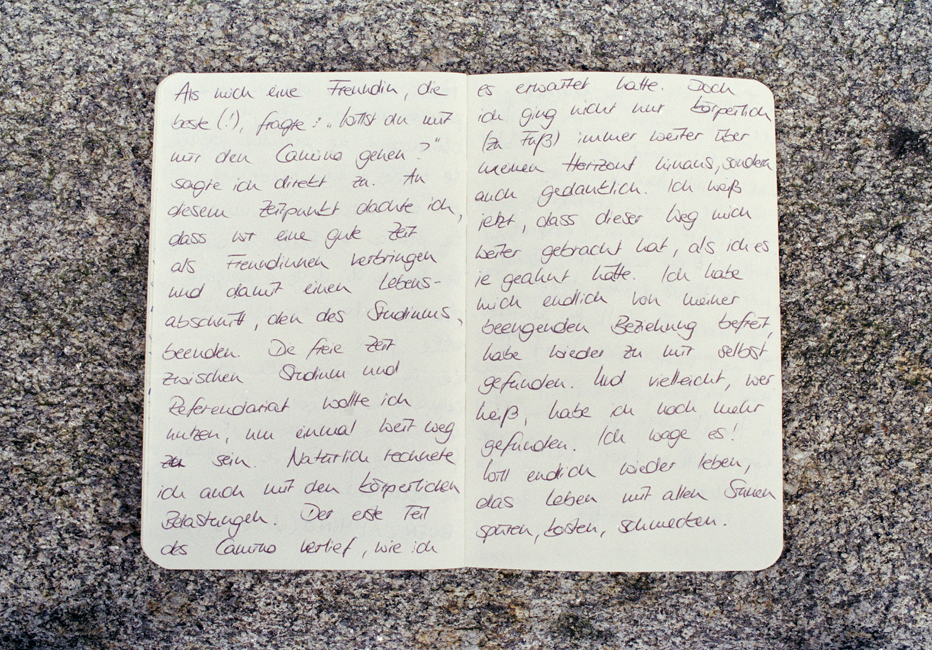 Als mich eine Freundin, die
beste (!), fragte: „Willst du mit
mir den Camino gehen?"
sagte ich direkt zu. An
diesem Zeitpunkt dachte ich,
dass ist eine gute Zeit
als Freundinnen verbringen
und damit einen Lebens-
abschnitt, den des Studiums,
beenden. Die freie Zeit
zwischen Studium und
Referendariat wollte ich
nutzen, um einmal weit weg
zu sein. Natürlich rechnete
ich auch mit den körperlichen
Belastungen. Der erste Teil
des Camino verlief, wie ich
es erwartet hatte. Doch
ich ging nicht nur körperlich
(zu Fuß) immer weiter über
meinen Horizont hinaus, sondern
auch gedanklich. Ich weiß
jetzt, dass dieser Weg mich
weiter gebracht hat, als ich es
je geahnt hätte. Ich habe
mich endlich von meiner
beengenden Beziehung befreit,
habe wieder zu mir selbst
gefunden. Und vielleicht, wer
weiß, habe ich noch mehr
gefunden. Ich wage es!
Will endlich wieder leben,
das Leben mit allen Sinnen
spüren, kosten, schmecken.